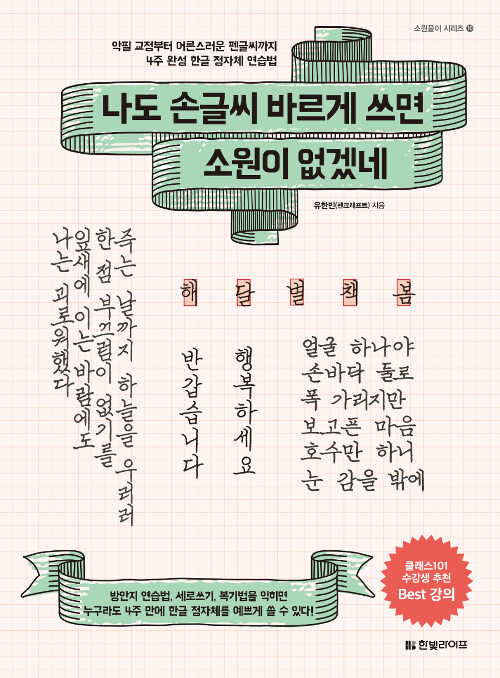 소원풀이 시리즈 11
악필 교정부터 어른스러운 펜글씨까지
4주 완성 한글 정자체 연습법
나도 손글씨 바르게 쓰면
소원이 없겠네
유한빈(펜크래프트) 지음
죽는 날까지 하늘을 우러러
한 점 부끄럼이 없기를
잎새에 이는 바람에도
나는 괴로워했다
해 달 별 책 봄
반갑습니다
행복하세요
얼굴 하나야
손바닥 둘로
폭 가리지만
보고픈 마음
호수만 하니
눈 감을 밖에
클래스101
수강생 추천
Best 강의
방안지 연습법, 세로쓰기, 복기법을 익히면
누구라도 4주 만에 한글 정자체를 예쁘게 쓸 수 있다!
한빛라이프